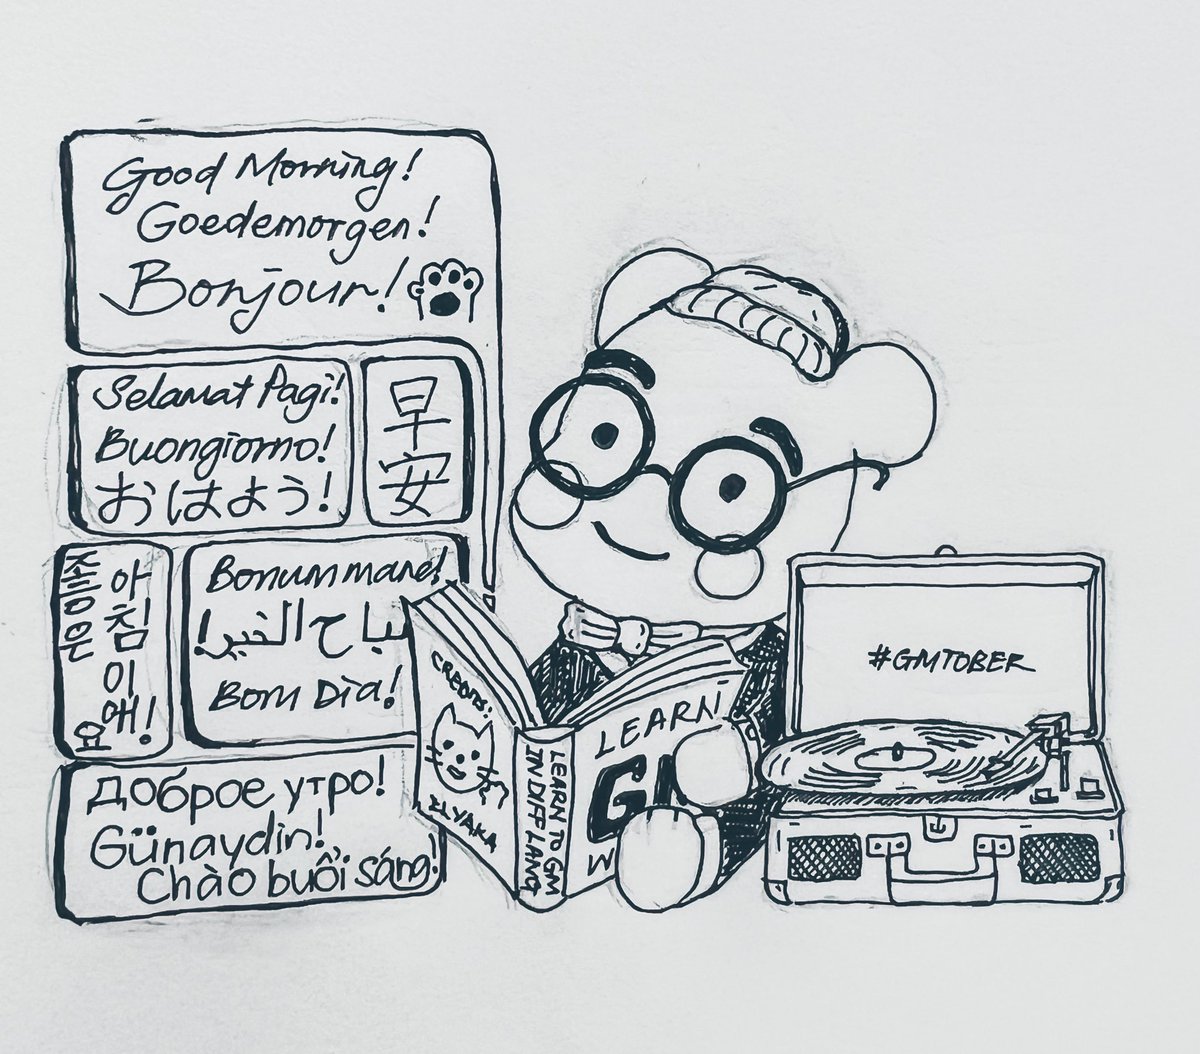 Good Morning!
Goedemorgen!
Bonjour!
Selamat Pagi!
Buongiorno!
おはよう!
早安
좋은
아침이애!
요
Bonum mane!
صباح الخير!
Bom Dia!
Доброе утро!
Günaydin!
Chào buổi sáng!
CREDITS:
LEARN TO GM
IN DIFF LANG
LEARN
G
W
#GMTOBER